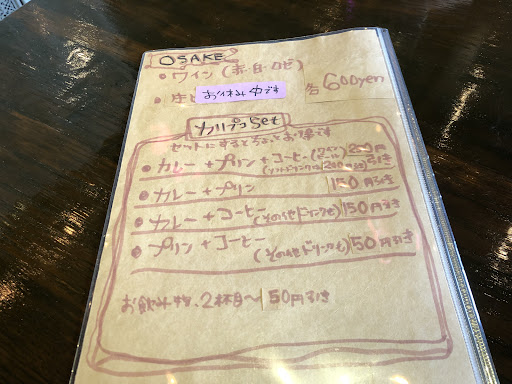 OSAKE
• ワイン (赤・白・ロゼ)
• 生ビ お休み中です 各600yen
カリプコset
セットにするとちょっとお得です
• カレー+プリン+コーヒー 200円引き
• カレー+プリン 150円引き
• カレー+コーヒー (その他ドリンクも) 150円引き
• プリン+コーヒー (その他ドリンクも) 50円引き
お飲み物、2杯目〜 50円引き